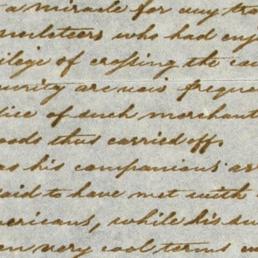 a miracle for any tra
muleteers who had enj
ilege of crossing the cou
curity are now freque
ice of such merchant
oods thus carried off.
as his companions ar
said to have met with
mericans, while his su
en very cool terms w